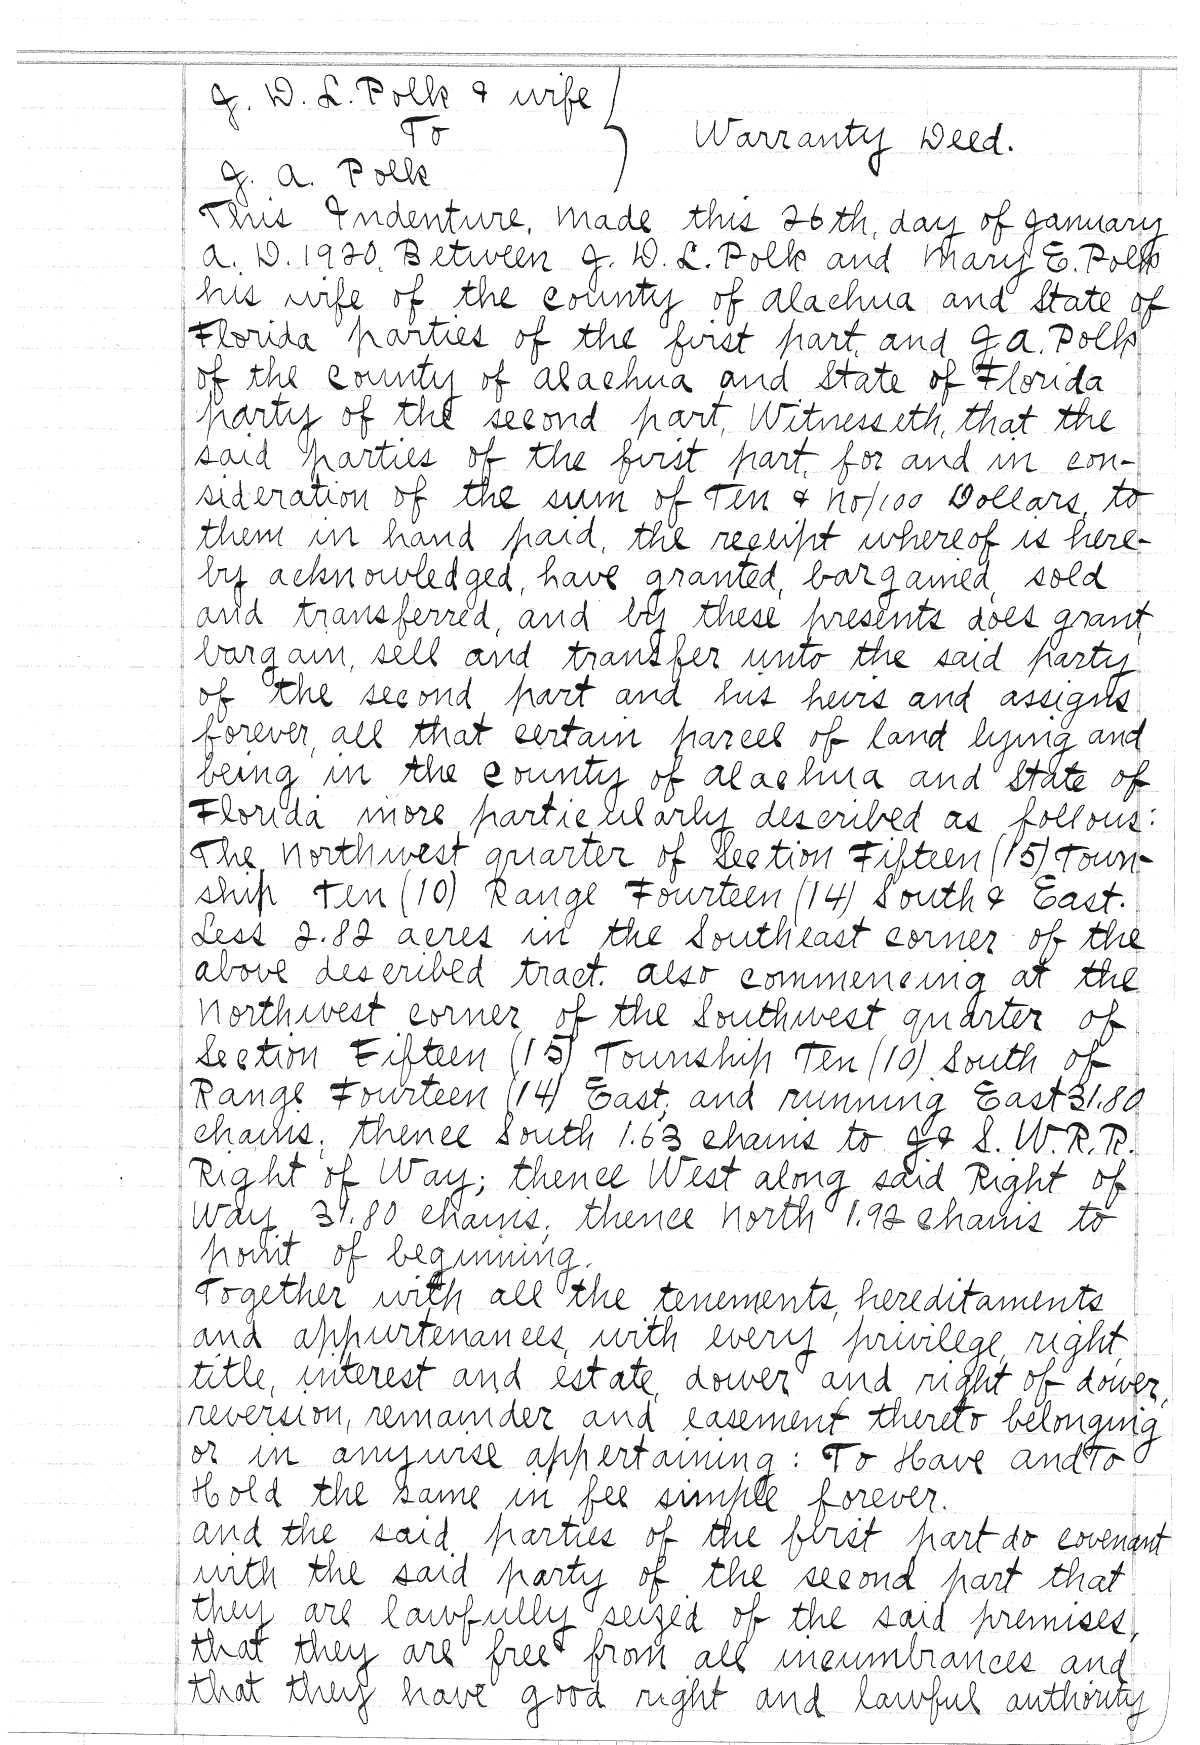 J. D. L. Polk & wife
To
J. A. Polk
Warranty Deed.
This Indenture, Made this 26th, day of January
A. D. 1920, Between J. D. L. Polk and Mary E. Polk
his wife of the county of Alachua and State of
Florida parties of the first part, and J A. Polk
of the county of Alachua and State of Florida
party of the second part, Witnesseth, that the
said parties of the first part, for and in con-
sideration of the sum of Ten & no/100 Dollars, to
them in hand paid, the receipt whereof is here-
by acknowledged, have granted, bargained, sold
and transferred, and by these presents does grant,
bargain, sell and transfer unto the said party
of the second part and his heirs and assigns
forever, all that certain parcel of land lying and
being in the county of Alachua and State of
Florida more particularly described as follows:
The Northwest quarter of Section Fifteen (15) Town-
ship Ten (10) Range Fourteen (14) South & East.
Less 2.82 acres in the Southeast corner of the
above described tract. Also commencing at the
Northwest corner of the Southwest quarter of
Section Fifteen (15) Township Ten (10) South of
Range Fourteen (14) East, and running East 31.80
chains; thence South 1.63 chains to J & S. W. R. R.
Right of Way; thence West along said Right of
Way 31.80 chains; thence North 1.92 chains to
point of beginning.
Together with all the tenements, hereditaments
and appurtenances, with every privilege, right,
title, interest and estate, dower and right of dower,
reversion, remainder and easement thereto belonging
or in anywise appertaining: To Have and To
Hold the same in fee simple forever.
And the said parties of the first part do covenant
with the said party of the second part that
they are lawfully seized of the said premises,
that they are free from all incumbrances and
that they have good right and lawful authority